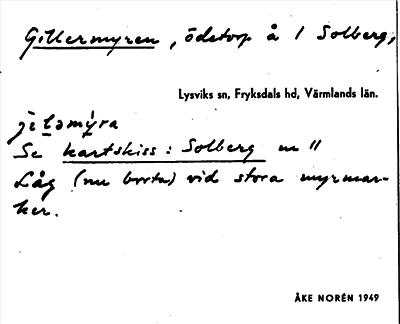 Gillermyren, ödetorp å 1 Solberg,
Lysviks sn, Fryksdals hd, Värmlands län.
Se kartskiss: Solberg nr 11
Låg (nu borta) vid stora myrmar-
ker.
ÅKE NORÉN 1949